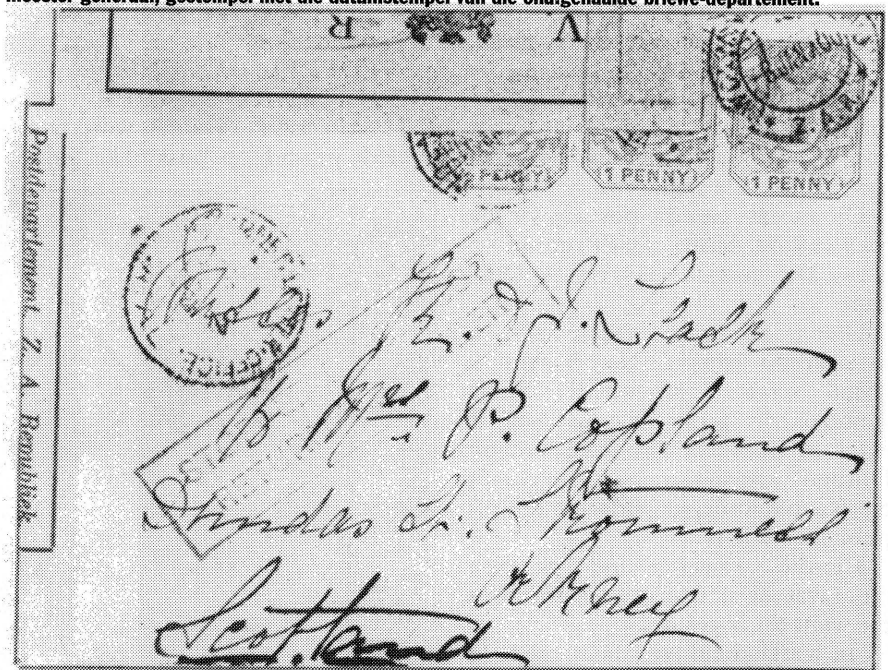 meester-generaal, gestempel met die datumstempel van die onafgehaalde briewe-departement.
V R
Z.A.R.
PENNY) (1 PENNY) (1 PENNY)
Postdepartement Z. A. Republiek
OFFICE
Miss K. J. I.
c/o Mrs P. Copland
Dundas St. Stromness
Orkney
Scotland